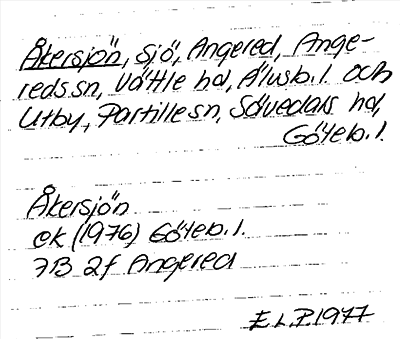 Åkersjön, sjö, Angered, Ange-
reds sn, Vättle hd, Älvsb. l. och
Utby, Partille sn, Sävedals hd,
Göteb. l.
Åkersjön
ek (1976) Göteb. l.
7B 2f Angered
E.L.P. 1977